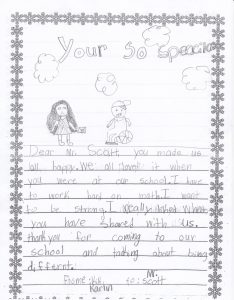 Your so special
Dear Mr. Scott, you made us
all happy. We all loved it when
you were at our school. I have
to work hard on math. I want
to be strong. I really liked what
you have shared with us.
thank you for coming to our
school and talking about being
differnt.
From: to: Mr. Scott
Karlin